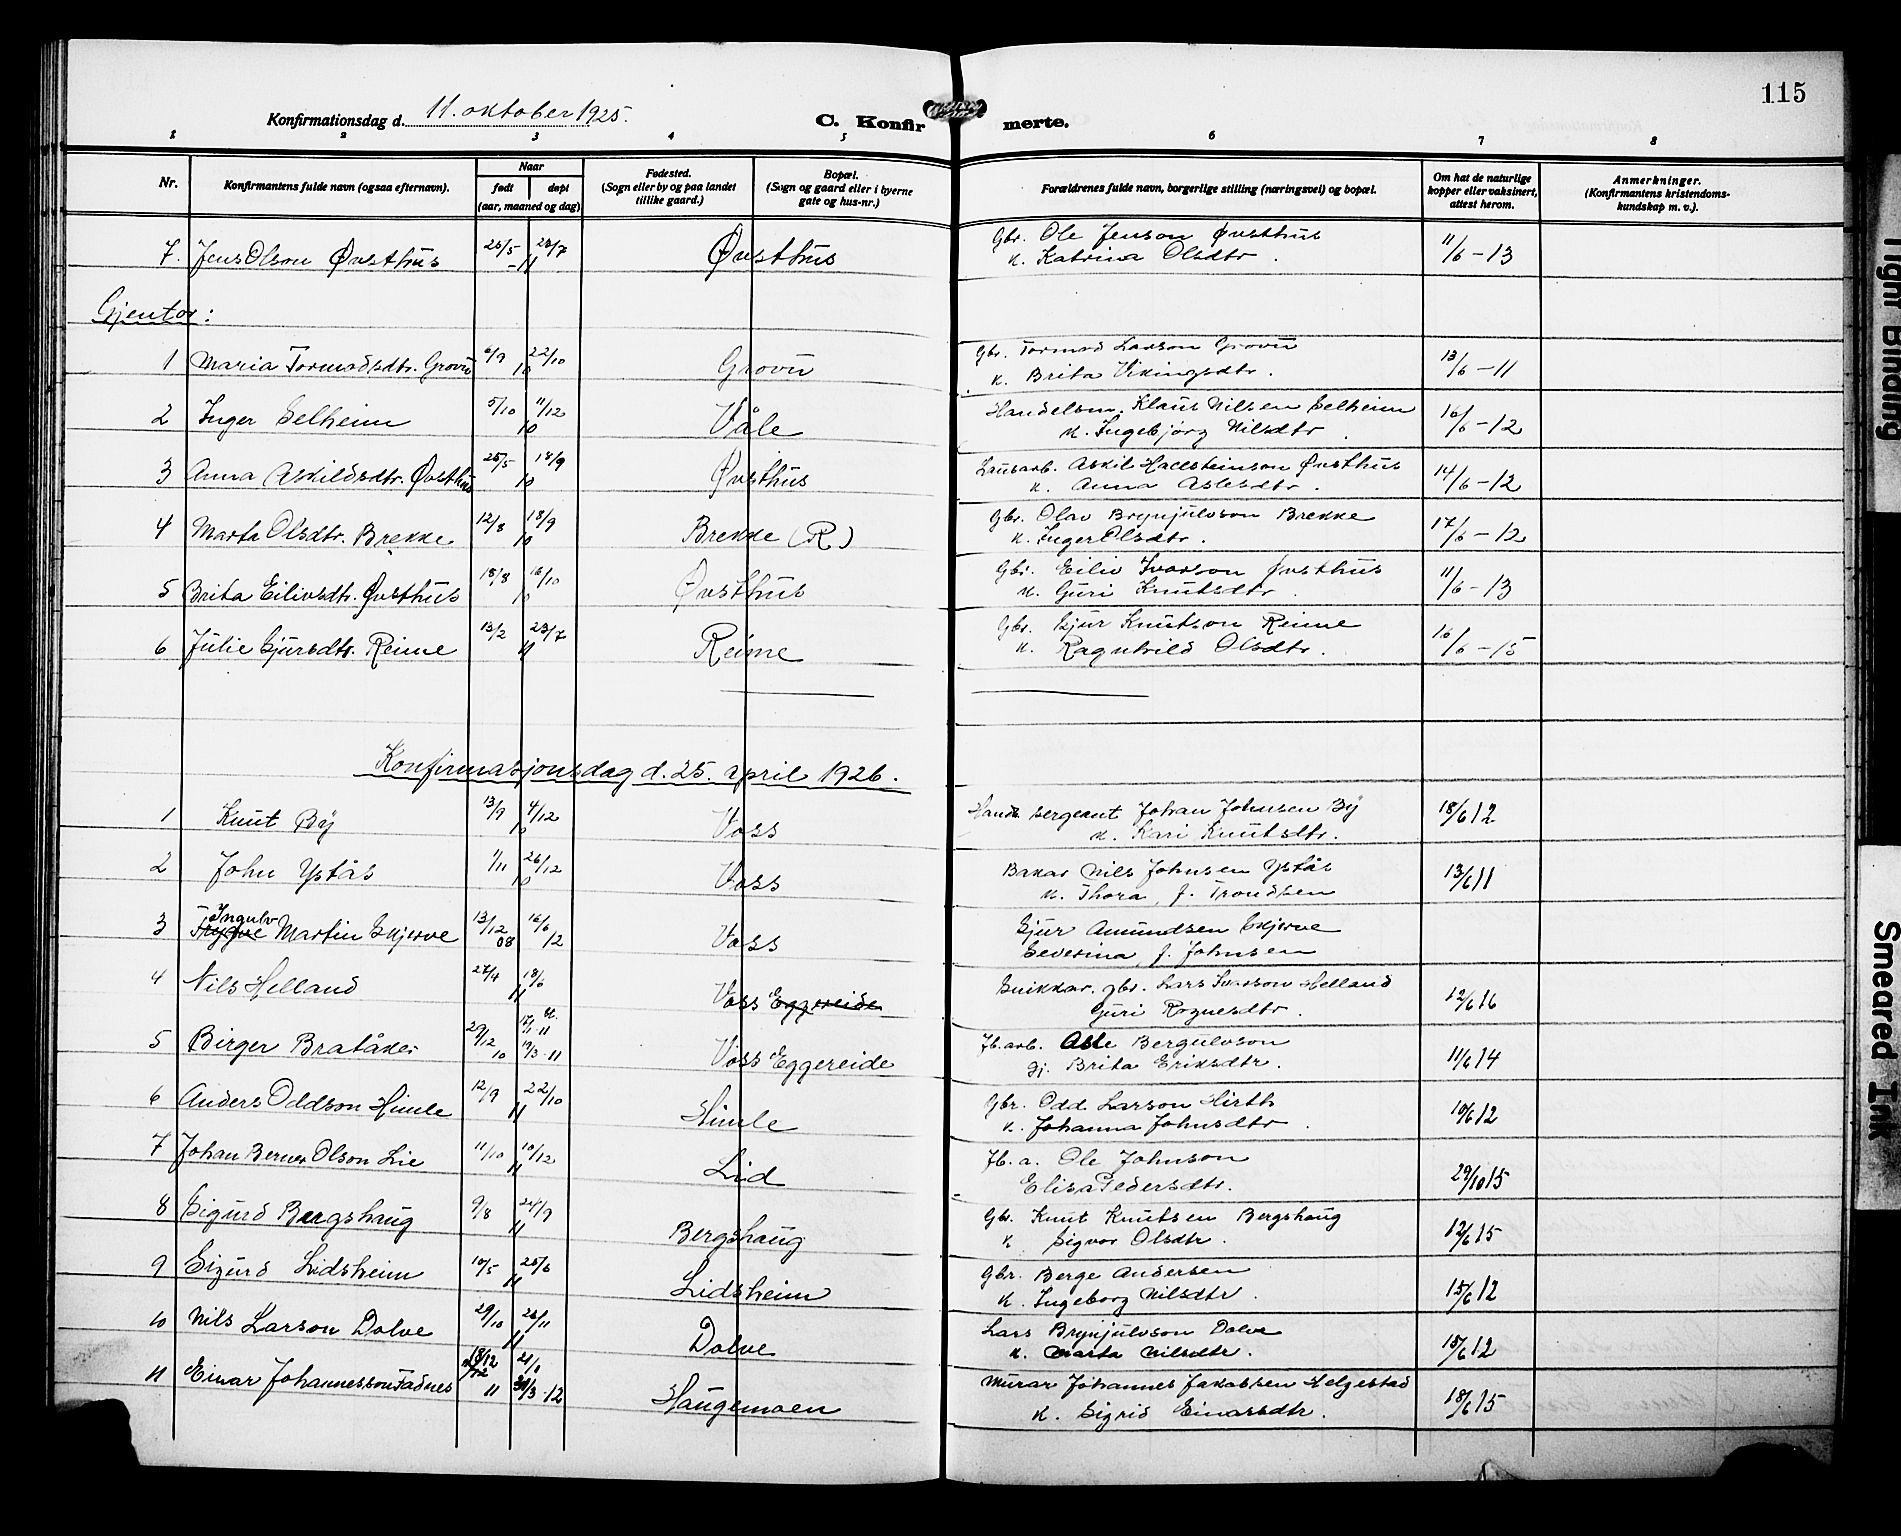 115
Konfirmationsdag d. 11. oktober 1925.
C. Konfirmerte.
1 2 3 4 5 6 7 8
Nr.
Konfirmantens fulde navn (ogsaa efternavn).
Naar
født døpt
(aar, maaned og dag)
Fødested.
(Sogn eller by og paa landet
tillike gaard.)
Bopæl.
(Sogn og gaard eller i byerne
gate og hus-nr.)
Forældrenes fulde navn, borgerlige stilling (næringsvei) og bopæl.
Om hat de naturlige
kopper eller vaksinert,
attest herom.
Anmerkninger.
(Konfirmantens kristendoms-
kundskap m. v.).
7. Jens Olson Øvsthus 23/7 -11 Øvsthus Gbr. Ole Jenson Øvsthus 11/6-13
k. Katrina Olsdtr.
Gjentor:
1 Maria Tormodsdtr. Grovu 6/9 22/10 10 Grovu Gbr. Tormod Larson Grovu 13/6-11
k. Brita Vikingsdtr.
2 Inger Selheim 5/10 11/12 10 Våle Handelsm. Klaus Nilsen Selheim 16/6-12
k. Ingebjørg Nilsdtr.
3 Anna Askildsdtr. Øvsthus 25/5 18/9 10 Øvsthus Lausarb. Askil Hallsteinson Øvsthus 14/6-12
k. Anna Aslesdtr.
4 Marta Olsdtr. Brekke 12/8 18/9 10 Brekke (R) Gbr. Olav Brynjulvson Brekke 17/6-12
k. Inger Olsdtr.
5 Brita Eilivsdtr. Øvsthus 18/8 16/10 10 Øvsthus Gbr. Eiliv Ivarson Øvsthus 11/6-13
k. Guri Knutsdtr.
6 Julie Gjursdtr. Reime 13/2 23/7 11 Reime Gbr. Gjur Knutson Reime 16/6-15
k. Ragnhild Olsdtr.
Konfirmasjonsdag d. 25. april 1926.
1 Knut By 13/9 4/12 10 Voss Hand. sergeant Johan Johnsen By 18/6 12
k. Kari Knutsdtr.
2 John Ystås 1/11 26/12 10 Voss Bakar Nils Johnsen Ystås 13/6 11
k. Thora f. Trondsen
Ingulv
3 Trygve Martin Skjerve 13/12 08 16/6 12 Voss Gjur Amundsen Skjerve
Severina f. Johnsen
4 Nils Helland 27/4 18/6 11 Voss Eggereide Snikkar, gbr. Lars Ivarson Helland 12/6 16
Guri Rognesdtr.
5 Birger Bratåker 29/12 10 19/3-11 Voss Eggereide Jb.arb. Asle Bergulvson 11/6 14
Gj. Brita Eriksdtr.
6 Anders Oddson Himle 12/9 22/10 11 Himle Gbr. Odd Larson 10/6 12
k. Johanna Johnsdtr.
7 Johan Berner Olson Lie 11/10 10/12 11 Lid Jb. a. Ole Johnson 29/10 15
Elisa Pedersdtr.
8 Sigurd Bergshaug 9/8 24/9 11 Bergshaug Gbr. Knut Knutsen Bergshaug 12/6 15
k. Sigvor Olsdtr.
9 Sigurd Lidsheim 10/5 25/6 11 Lidsheim Gbr. Berge Andersen 15/6 12
k. Ingeborg Nilsdtr.
10 Nils Larson Dolve 29/10 26/11 11 Dolve Lars Brynjulvson Dolve 15/6 12
k. Marta Nilsdtr.
11 Einar Johannesson Fadnes 18/12 11 31/3 12 Haugemoen Murar Johannes Jakobsen Helgestad 18/6 15
k. Sigrid Einarsdtr.
Tight Binding
Smeared Ink